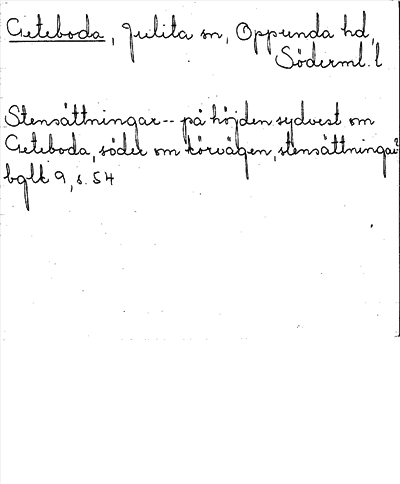 Geteboda, Julita sn, Oppunda hd,
Söderml. l
Stensättningar -- på höjden sydvest om
Geteboda, söder om körvägen, stensättningar
bglt 9, s. 54